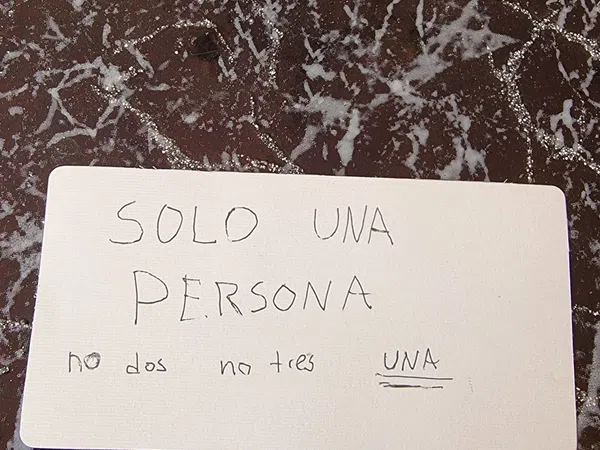 SOLO UNA
PERSONA
no dos no tres UNA